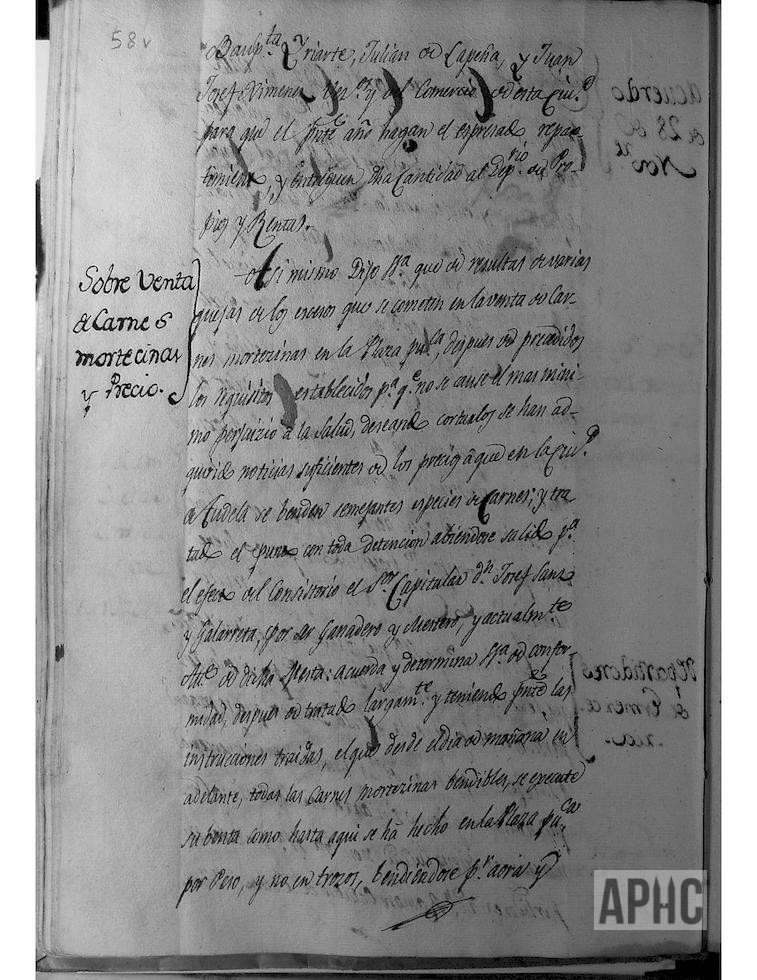 58v
Baup.ta Yriarte, Julian de Lapeña, y Juan
Josef Ximenez Vez.s y del Comercio de esta Ciu.d
para que el pnte año hagan el expresado repar-
timiento, y entreguen dha Cantidad al Dep.rio de Pro-
pios y Rentas.
Sobre Venta
de Carnes
mortecinas
y Precio.
Asi mismo Dijo S.a que de resultas de varias
quejas de los excesos que se cometen en la venta de Car-
nes mortezinas en la Plaza pu.ca, despues de precedidos
los requisitos establecidos p.a q.e no se cause el mas mini-
mo perjuizio a la Salud, deseando cortarlos se han ad-
quirido noticias suficientes de los precios a que en la Ciu.d
de Tudela se benden semejantes especies de Carnes; y tra-
tado el punto con toda detencion abiendose salido p.a
el efecto del Consistorio el S.or Capitular d.n Josef Sanz
y Galarreta, por ser Ganadero y Mestero, y actualm.te
Alc.e de dicha Mesta: acuerda y determina S.a de confor-
midad, despues de tratado largam.te y teniendo pntes las
instrucciones traidas, el que desde el dia de mañana en
adelante, todas las Carnes mortezinas bendibles, se execute
su benta como hasta aqui se ha hecho en la Plaza pu.ca
por Peso, y no en trozos, bendiendose p.r aora y
Acuerdo
de 28 de
Nov.re
APHC